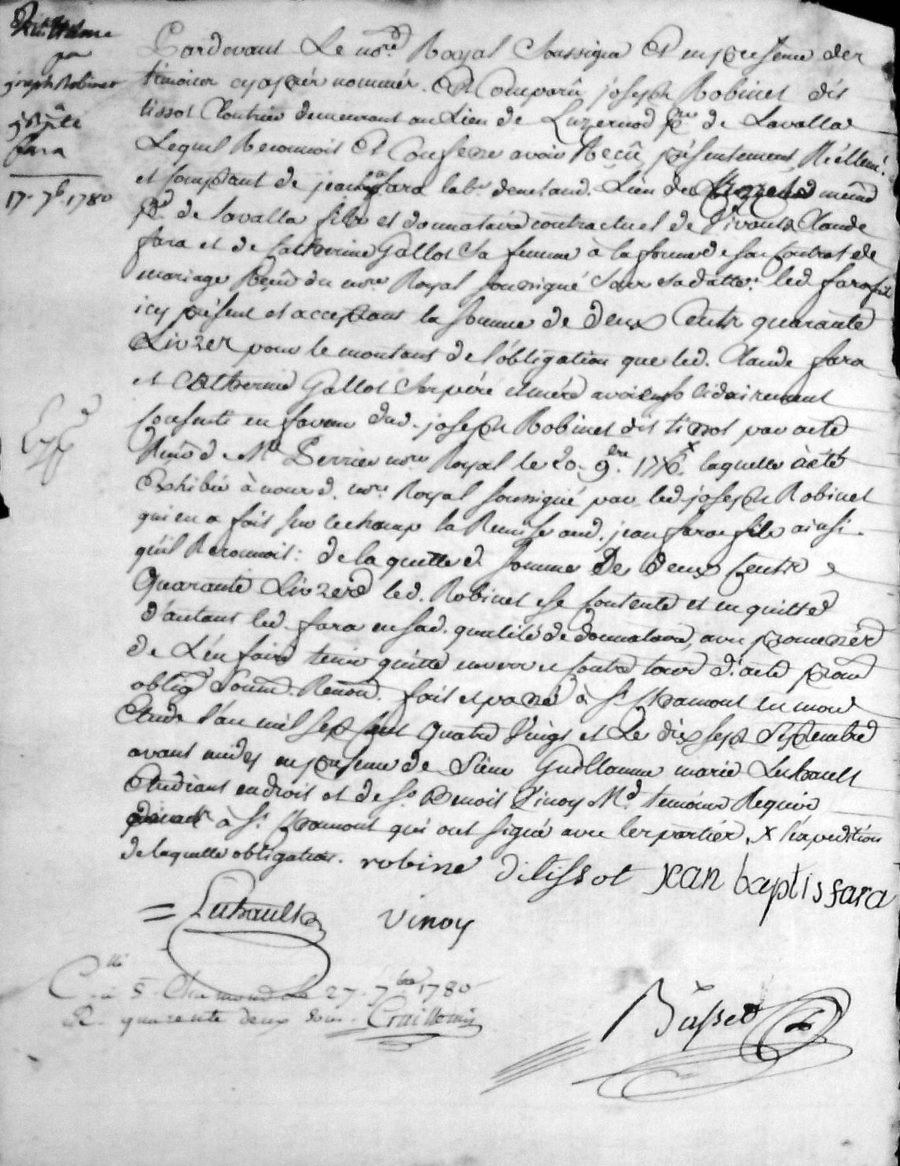 par
joseph Robinet
à jn bte
fara
17. 7b. 1780
Pardevant Le nore. Royal Soussigné Et en presence des
témoins cy apres nommés. Est Comparû joseph Robinet dit
tissot Cloutier demeurant au Lieu de Luzernod psse de Lavalla
Lequel Reconnoit Et Confesse avoir Reçû présentement Réellemt.
et comptant de jean fara labr. demeurand. Lieu de
psse de Lavalla fils et donnataire contractuel de Vivants Claude
fara et de Catherine Gallot sa femme à la forme de son Contrat de
mariage Reçû du nore. Royal soussigné Sous sa datte. led. fara fils
icy présent et acceptant la somme de deux Cents quarante
Livres pour le montant de l'obligation que led. Claude fara
et Catherine Gallot Ses père et mère avoient solidairement
Consentie en faveur dud. joseph Robinet dit tissot par acte
Reçû de Me Perrier nore Royal le 20. 9bre. laquelle a été
Exhibée à nousd. nore Royal soussigné par led. joseph Robinet
qui en a fait sur le champ la Remise aud. jean fara fils ainsi
quil Reconnoit: de laquelle d. somme De deux Cents
Quarante Livres led. Robinet se Contente et en quitte
d'autant led. fara en sad. qualité de donnataire, avec promesse
de L'en faire tenir quitte envers et contre tous. d'acte prom
oblig Soum. Renon. fait et passé à St. Chamont en mon
Etude l'an mil sept Cent Quatre Vingt et Le dix sept Septembre
avant midy en presence de Sieur Guillaume marie Lubault
Etudiant en droit et de Sr. Benoit Vinoy Md. temoins Requis
à St. Chamont qui ont signé avec les parties, x l'expedition
de laquelle obligation. robine ditissot jean baptis fara
= Lubault Vinoy
Clé à St. Chamond le 27. 7bre 1780
R. quarente deux sous.
Basset